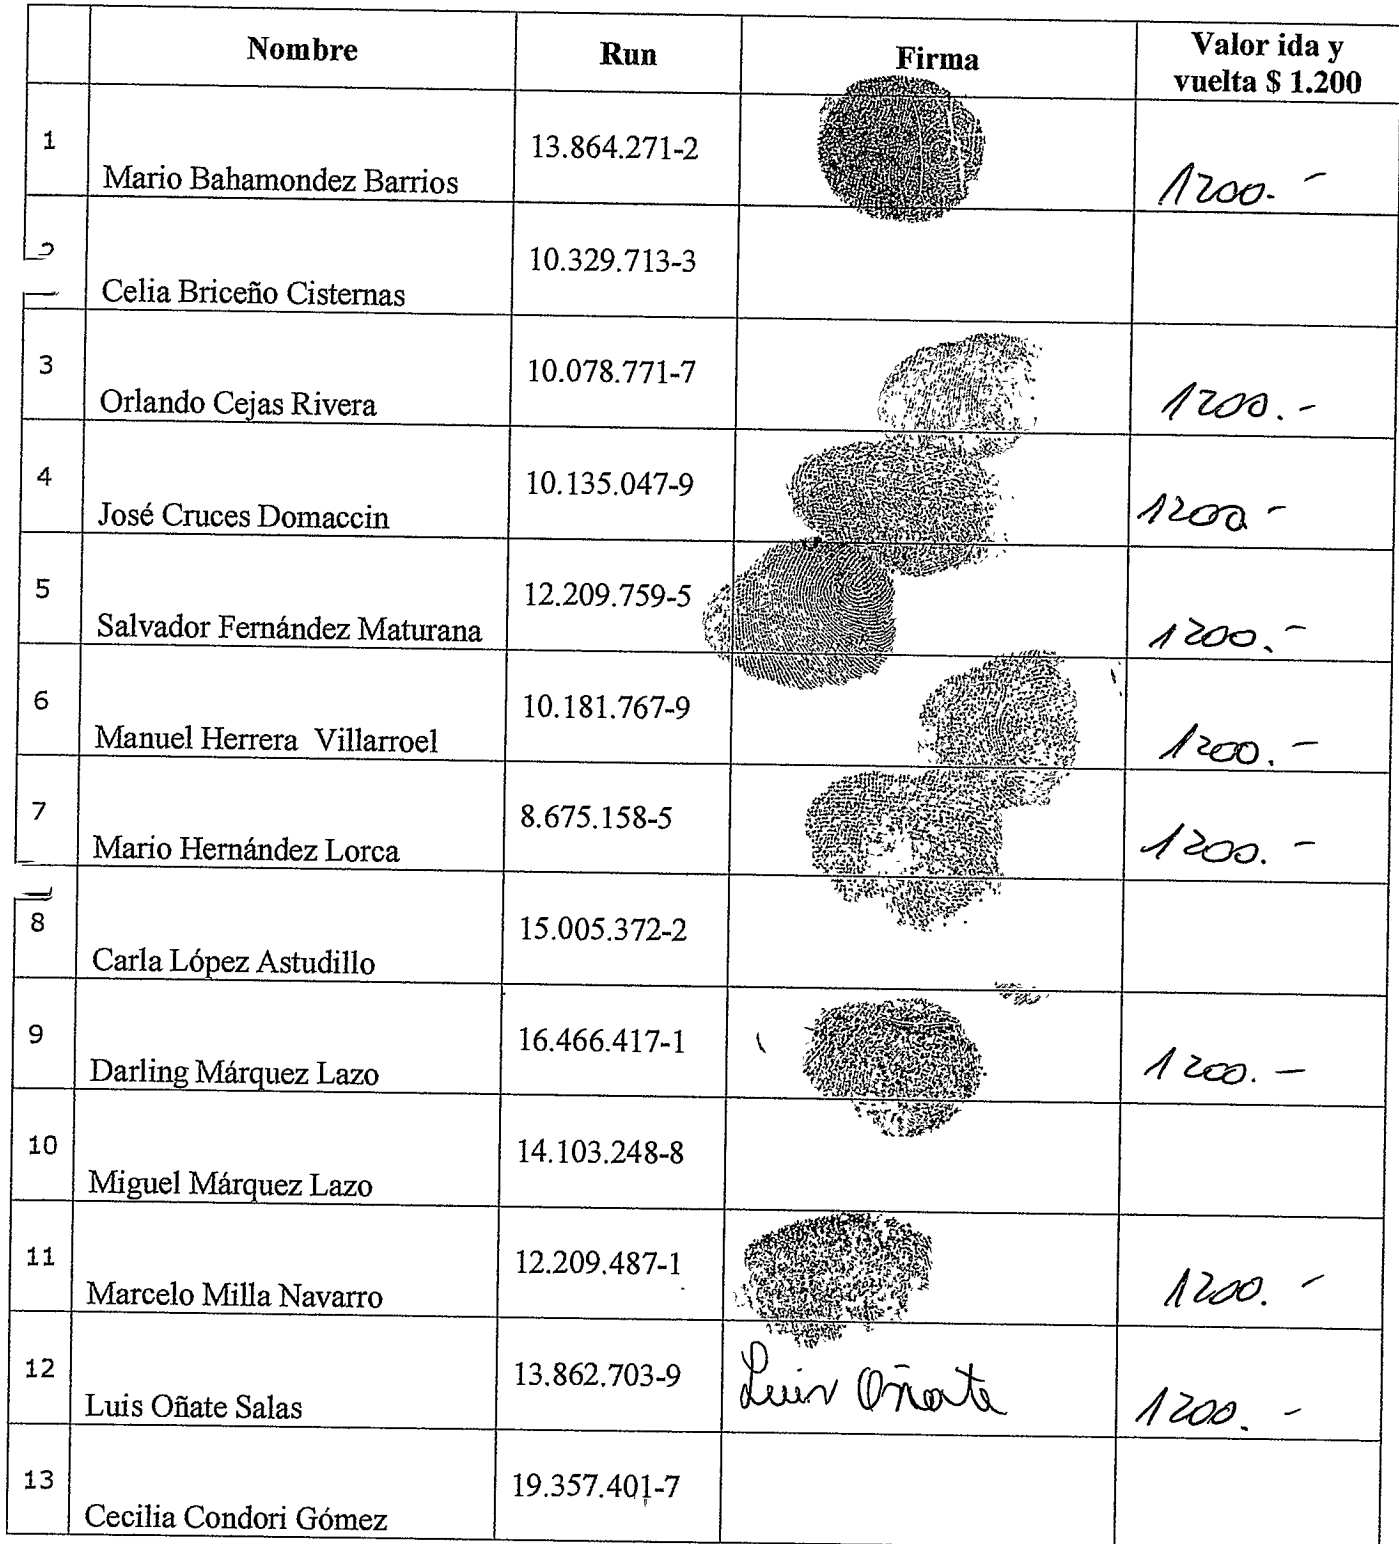 Nombre Run Firma Valor ida y
vuelta $ 1.200
1 Mario Bahamondez Barrios 13.864.271-2 1200.-
2 Celia Briceño Cisternas 10.329.713-3
3 Orlando Cejas Rivera 10.078.771-7 1200.-
4 José Cruces Domaccin 10.135.047-9 1200-
5 Salvador Fernández Maturana 12.209.759-5 1200.-
6 Manuel Herrera Villarroel 10.181.767-9 1200.-
7 Mario Hernández Lorca 8.675.158-5 1200.-
8 Carla López Astudillo 15.005.372-2
9 Darling Márquez Lazo 16.466.417-1 1200.-
10 Miguel Márquez Lazo 14.103.248-8
11 Marcelo Milla Navarro 12.209.487-1 1200.-
12 Luis Oñate Salas 13.862.703-9 Luis Oñate 1200.-
13 Cecilia Condori Gómez 19.357.401-7